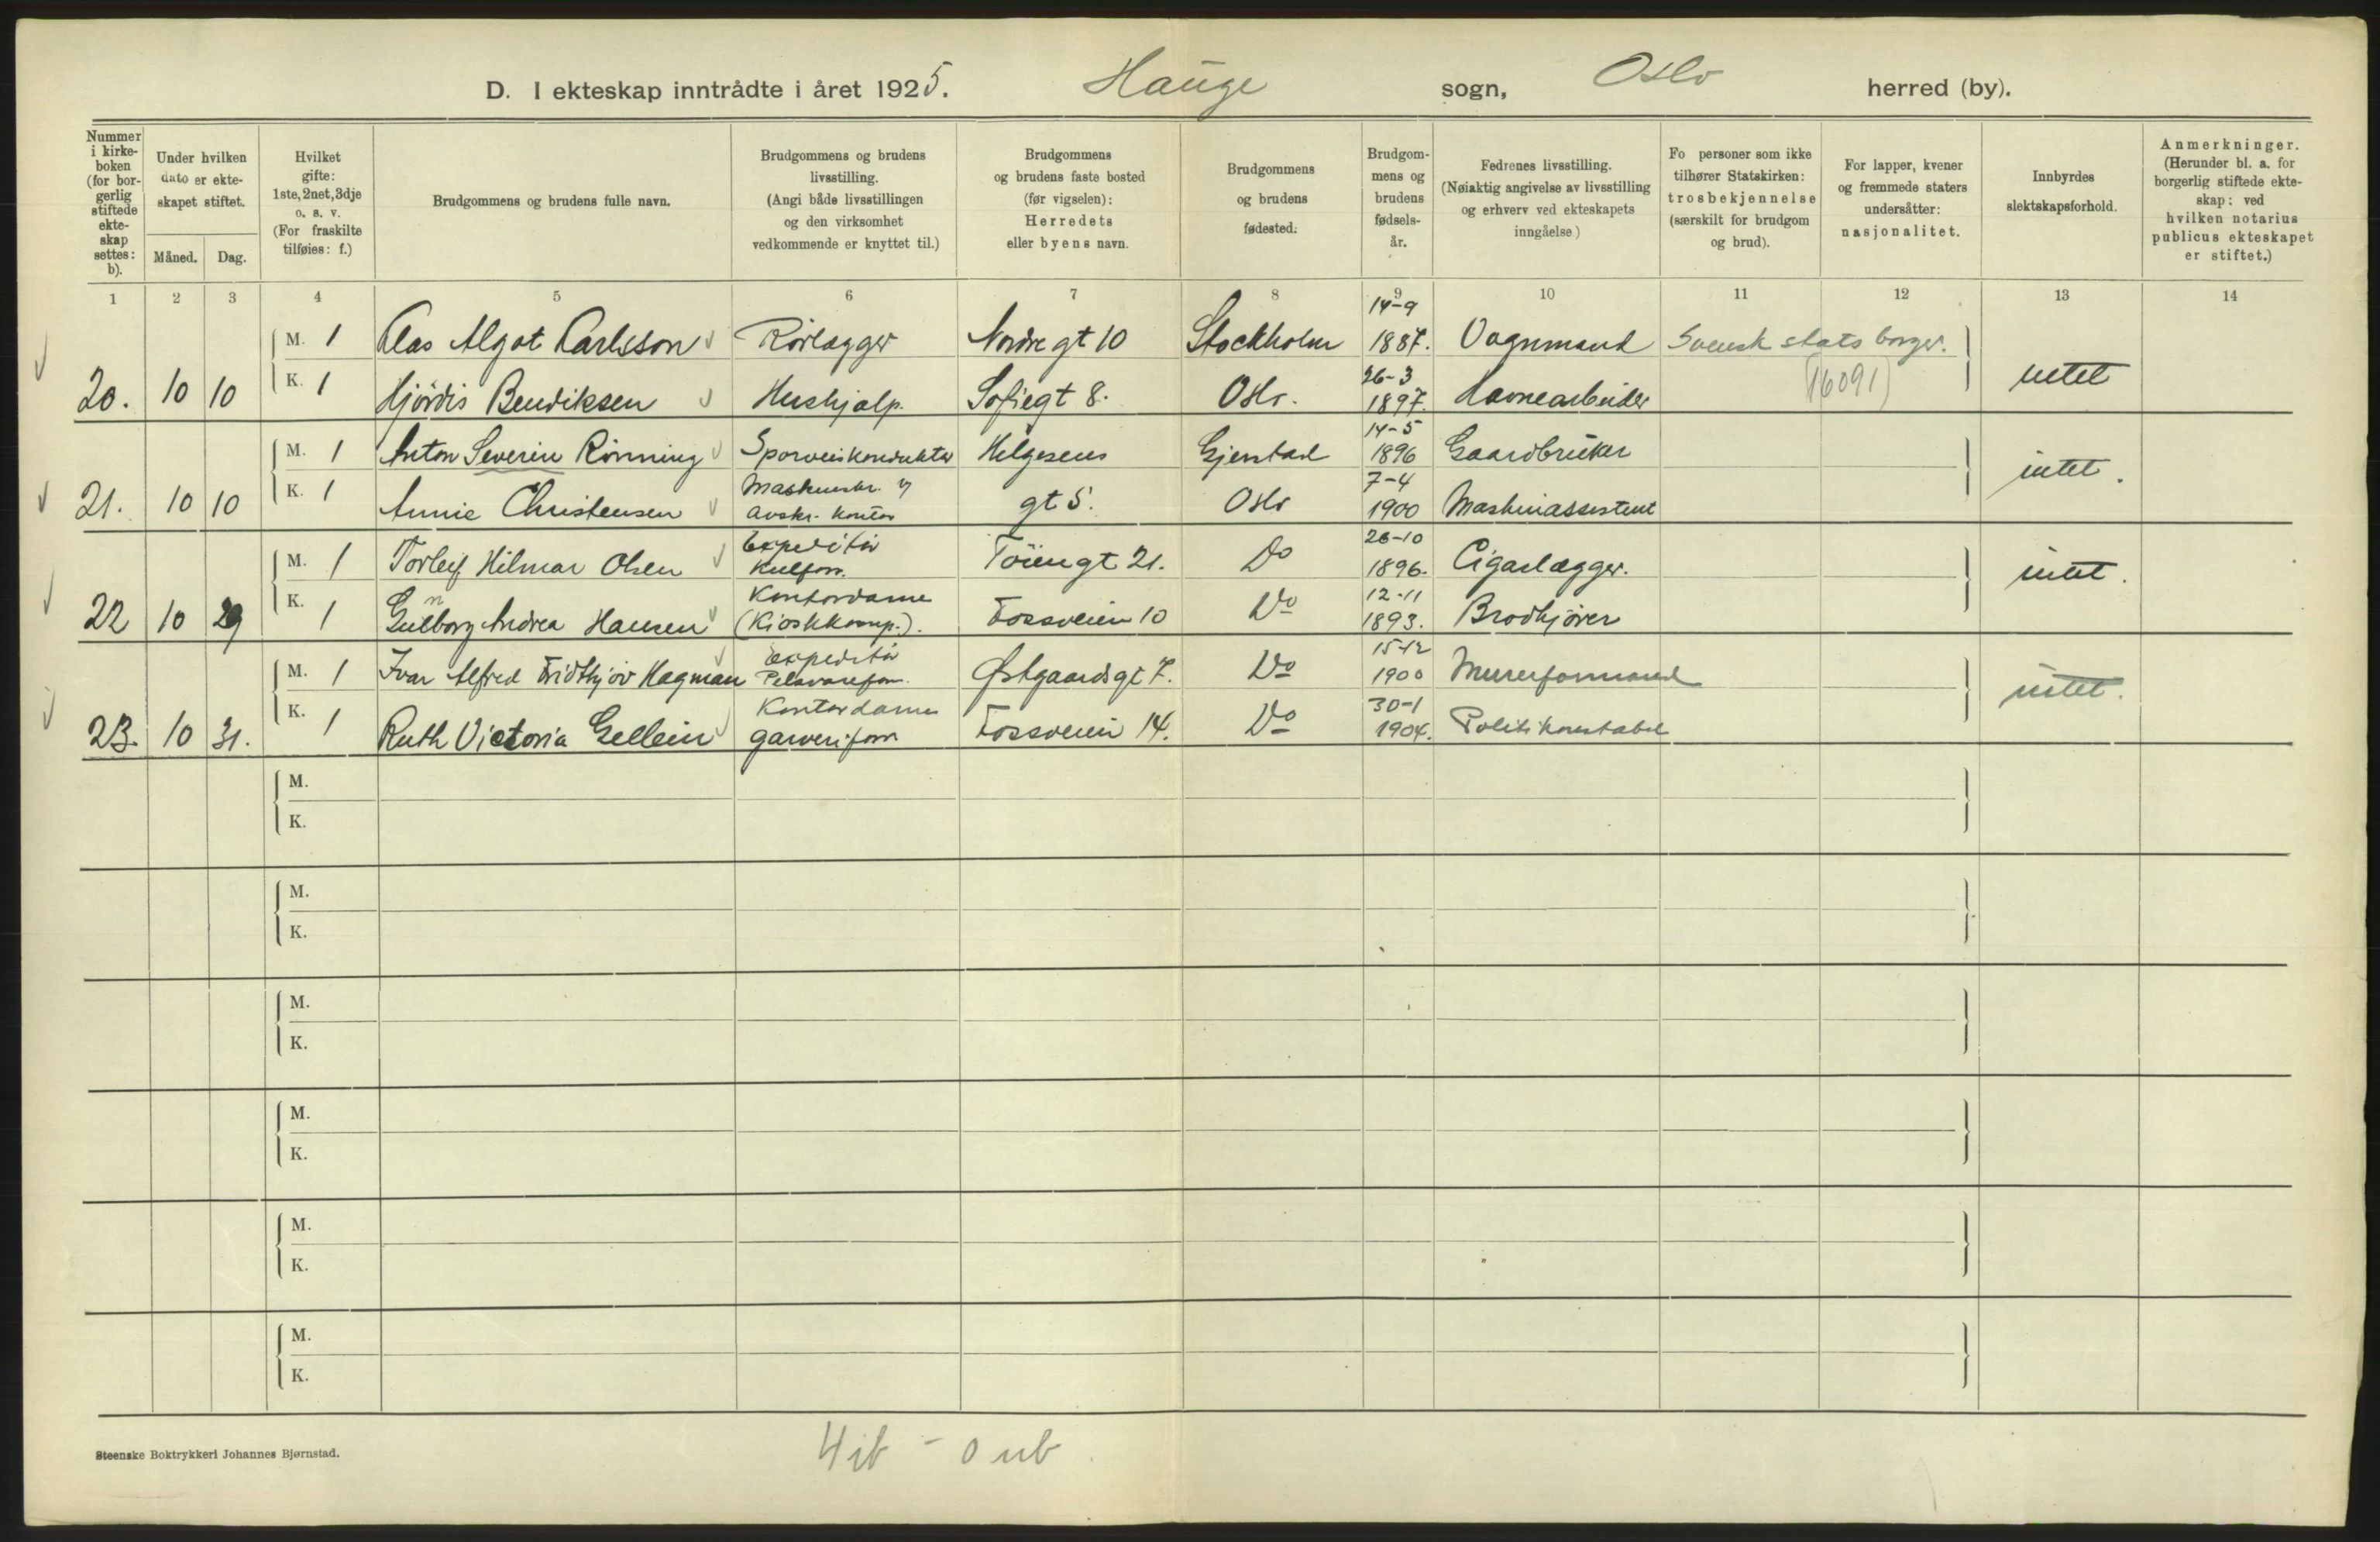 D. I ekteskap inntrådte i året 1925. Hauge sogn, Oslo herred (by).
Nummer i kirke-boken (for bor-gerlig stiftede ekte-skap settes: b).
Under hvilken dato er ekte-skapet stiftet.
Måned.
Dag.
Hvilket gifte: 1ste, 2net, 3dje o. s. v. (For fraskilte tilføies: f.)
Brudgommens og brudens fulle navn.
Brudgommens og brudens livsstilling. (Angi både livsstillingen og den virksomhet vedkommende er knyttet til.)
Brudgommens og brudens faste bosted (før vigselen): Herredets eller byens navn.
Brudgommens og brudens fødested.
Brudgom-mens og brudens fødsels-år.
Fedrenes livsstilling. (Nøiaktig angivelse av livsstilling og erhverv ved ekteskapets inngåelse.)
Fo personer som ikke tilhører Statskirken: trosbekjennelse (særskilt for brudgom og brud).
For lapper, kvener og fremmede staters undersåtter: nasjonalitet.
Innbyrdes slektskapsforhold.
Anmerkninger. (Herunder bl. a. for borgerlig stiftede ekte-skap: ved hvilken notarius publicus ekteskapet er stiftet.)
1 2 3 4 5 6 7 8 9 10 11 12 13 14
M. 1 Clas Algot Carlsson Rörlægger Nordre gt 10 Stockholm 14-9 1887. Vognmand Svensk statsborger.
20. 10 10 K. 1 Hjördis Bendiksen Hushjalp. Sofiegt 8. Oslo. 26-3 1897. Havnearbeider (16091) intet
M. 1 Anton Severin Rönning Sporveiskonduktör Helgesens Gjerstad 14-5 1896 Gaardbruker
21. 10 10 K. 1 Annie Christensen Maskinskr. v/ Avskr. kontor gt 5. Oslo 7-4 1900 Maskinassistent intet.
M. 1 Torleif Hilmar Olsen Expeditör Kulforr. Töiengt 21. Do 26-10 1896. Cigarlægger.
22 10 29 K. 1 Gunborg Andrea Hansen Kontordame (Kioskkomp.). Fossveien 10 Do 12-11 1893. Brödkjörer intet.
M. 1 Ivar Alfred Fridthjov Hagman Expeditör Pelsvareforr. Østgaardsgt 7. Do 15-12 1900 Murerformand
23. 10 31. K. 1 Ruth Victoria Gellein Kontordame garveriforr Fossveien 14. Do 30-1 1904. Politikonstabel intet.
M.
K.
M.
K.
M.
K.
M.
K.
M.
K.
M.
K.
Steenske Boktrykkeri Johannes Bjørnstad.
4 ib - 0 ub